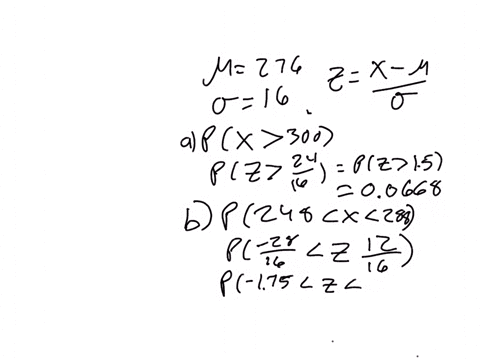 μ = 276 z = x − μ / σ
σ = 16
a) P(X > 300)
P(Z > 24/16) = P(Z > 1.5)
= 0.0668
b) P(248 < x < 288)
P(−28/16 < Z 12/16)
P(−1.75 < z <